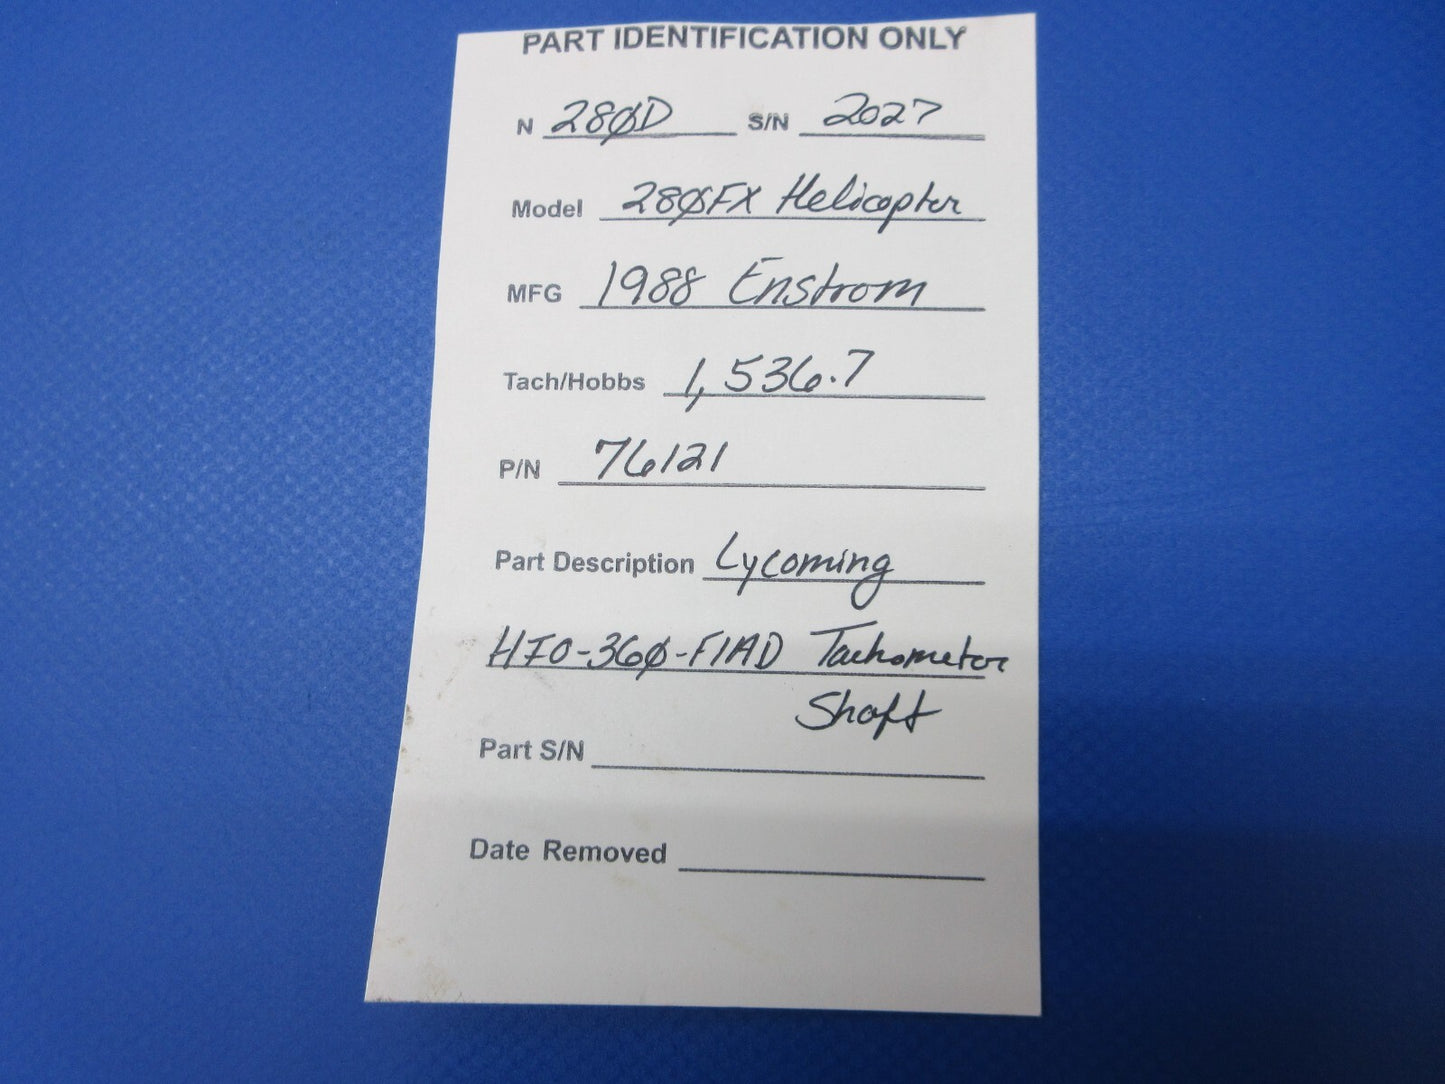 PART IDENTIFICATION ONLY
N 28ØD S/N 2027
Model 28ØFX Helicopter
MFG 1988 Enstrom
Tach/Hobbs 1,536.7
P/N 76121
Part Description Lycoming
HIO-36Ø-F1AD Tachometer
Shaft
Part S/N
Date Removed